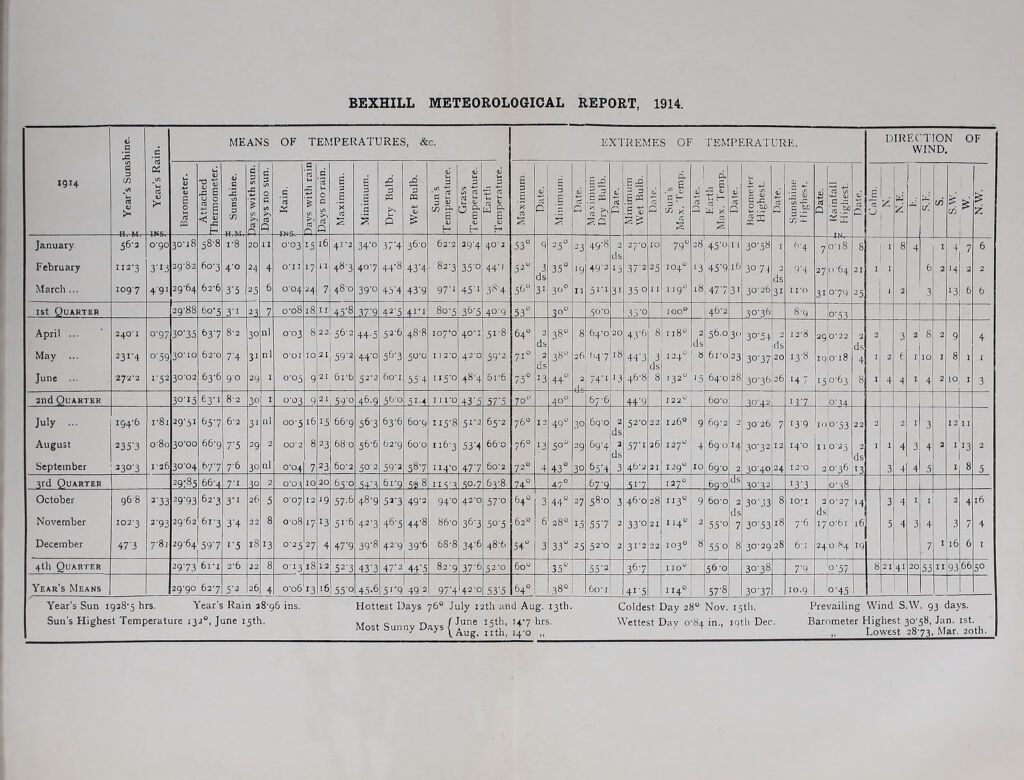 BEXHILL METEOROLOGICAL REPORT, 1914.
1914 | Year's Sunshine. | Year's Rain. | MEANS OF TEMPERATURES, &c. | EXTREMES OF TEMPERATURE. | DIRECTION OF WIND.
Barometer. | Attached Thermometer. | Sunshine. | Days with sun. | Days no sun. | Rain. | Days with rain | Days no rain. | Maximum. | Minimum. | Dry Bulb. | Wet Bulb. | Sun's Temperature. | Grass Temperature. | Earth Temperature. | Maximum. | Date. | Minimum. | Date. | Maximum Dry Bulb. | Date. | Minimum Wet Bulb. | Date. | Sun's Max. Temp. | Date. | Earth Max. Temp. | Date. | Barometer Highest. | Date. | Sunshine Highest. | Date. | Rainfall Highest. | Date. | Calm. | N. | N.E. | E. | S.E. | S. | S.W. | W. | N.W.
H. M. | INS. | H.M. | INS. | IN.
January | 56·2 | 0·90 | 30·18 | 58·8 | 1·8 | 20 | 11 | 0·03 | 15 | 16 | 41·2 | 34·0 | 37·4 | 36·0 | 62·2 | 29·4 | 40·2 | 53° | 9 | 25° | 23 | 49·8 | 2 ds | 27·0 | 10 | 79° | 28 | 45·0 | 11 | 30·58 | 1 | 6·4 | 7 | 0·18 | 8 | 1 | 8 | 4 | 1 | 4 | 7 | 6
February | 112·3 | 3·13 | 29·82 | 60·3 | 4·0 | 24 | 4 | 0·11 | 17 | 11 | 48·3 | 40·7 | 44·8 | 43·4 | 82·3 | 35·0 | 44·1 | 52° | 3 ds | 35° | 19 | 49·2 | 15 | 37·2 | 25 | 104° | 13 | 45·9 | 16 | 30 74 | 2 ds | 9·4 | 27 | 0·64 | 21 | 1 | 1 | 6 | 2 | 14 | 2 | 2
March ... | 109·7 | 4·91 | 29·64 | 62·6 | 3·5 | 25 | 6 | 0·04 | 24 | 7 | 48·0 | 39·0 | 45·4 | 43·9 | 97·1 | 45·1 | 38·4 | 56° | 31 | 30° | 11 | 51·1 | 31 | 35 0 | 11 | 119° | 18 | 47·7 | 31 | 30·26 | 31 | 11·0 | 31 | 0·79 | 25 | 1 | 2 | 3 | 13 | 6 | 6
1ST QUARTER | 29·88 | 60·5 | 3·1 | 23 | 7 | 0·08 | 18 | 11 | 45·8 | 37·9 | 42·5 | 41·1 | 80·5 | 36·5 | 40·9 | 53° | 30° | 50·0 | 35·0 | 100° | 46·2 | 30·36 | 8·9 | 0·53
April ... | 240·1 | 0·97 | 30·35 | 63·7 | 8·2 | 30 | nl | 0·03 | 8 | 22 | 56·2 | 44·5 | 52·6 | 48·8 | 107·0 | 40·1 | 51·8 | 64° | 2 ds | 38° | 8 | 64·0 | 20 | 43·6 | 8 | 118° | 2 ds | 56·0 | 30 | 30·54 | 2 ds | 12·8 | 29 | 0·22 | 2 ds | 2 | 3 | 2 | 8 | 2 | 9 | 4
May ... | 231·4 | 0·59 | 30·10 | 62·0 | 7·4 | 31 | nl | 0·01 | 10 | 21 | 59·2 | 44·0 | 56·3 | 50·0 | 112·0 | 42·0 | 59·2 | 71° | 2 ds | 38° | 26 | 64·7 | 18 | 44·3 | 3 ds | 124° | 8 | 61·0 | 23 | 30·37 | 20 | 13·8 | 19 | 0·18 | 4 | 1 | 2 | 6 | 1 | 10 | 1 | 8 | 1 | 1
June ... | 272·2 | 1·52 | 30·02 | 63·6 | 9·0 | 29 | 1 | 0·05 | 9 | 21 | 61·6 | 52·2 | 60·1 | 55 4 | 115·0 | 48·4 | 61·6 | 75° | 13 | 44° | 2 ds | 74·1 | 13 | 46·8 | 8 | 132° | 15 | 64·0 | 28 | 30·36 | 26 | 14 7 | 15 | 0·63 | 8 | 1 | 4 | 4 | 1 | 4 | 2 | 10 | 1 | 3
2ND QUARTER | 30·15 | 63·1 | 8·2 | 30 | 1 | 0·03 | 9 | 21 | 59·0 | 46·9 | 56·0 | 51·4 | 111·0 | 43·5 | 57·5 | 70° | 40° | 67·6 | 44·9 | 122° | 60·0 | 30·42 | 13·7 | 0·34
July ... | 194·6 | 1·81 | 29·51 | 65·7 | 6·2 | 31 | nl | 00·5 | 16 | 15 | 66·9 | 56·3 | 63·6 | 60·9 | 115·8 | 51·2 | 65·2 | 76° | 12 | 49° | 30 | 69·0 | 2 ds | 52·0 | 22 | 126° | 9 | 69·2 | 2 | 30·26 | 7 | 13·9 | 10 | 0·53 | 22 | 2 | 2 | 1 | 3 | 12 | 11
August | 235·3 | 0·80 | 30·00 | 66·9 | 7·5 | 29 | 2 | 00·2 | 8 | 23 | 68·0 | 56·6 | 62·9 | 60·0 | 116·3 | 53·4 | 66·0 | 76° | 13 | 50° | 29 | 69·4 | 2 ds | 57·1 | 26 | 127° | 4 | 69·0 | 14 | 30·32 | 12 | 14·0 | 11 | 0·25 | 2 ds | 1 | 1 | 4 | 3 | 4 | 2 | 1 | 13 | 2
September | 230·3 | 1·26 | 30·04 | 67·7 | 7·6 | 30 | nl | 0·04 | 7 | 23 | 60·2 | 50·2 | 59·2 | 58·7 | 114·0 | 47·7 | 60·2 | 72° | 4 | 43° | 30 | 65·4 | 3 | 46·2 | 21 | 129° | 10 | 69·0 | 2 ds | 30·40 | 24 | 12·0 | 2 | 0·36 | 13 | 3 | 4 | 4 | 5 | 1 | 8 | 5
3RD QUARTER | 29;85 | 66·4 | 7·1 | 30 | 2 | 0·03 | 10 | 20 | 65·0 | 54·3 | 61·9 | 59 8 | 115·3 | 50·7 | 63·8 | 74° | 47° | 67·9 | 51·7 | 127° | 69·0 | 30·32 | 13·3 | 0·38
October | 96·8 | 2·33 | 29·93 | 62·3 | 3·1 | 26 | 5 | 0·07 | 12 | 19 | 57·6 | 48·9 | 52·3 | 49·2 | 94·0 | 42·0 | 57·0 | 64° | 3 | 44° | 27 | 58·0 | 3 | 46·0 | 28 | 113° | 9 | 60·0 | 2 ds | 30·33 | 8 | 10;1 | 2 ds | 0·27 | 14 | 3 | 4 | 1 | 1 | 2 | 4 | 16
November | 102·3 | 2·93 | 29·62 | 61·3 | 3·4 | 22 | 8 | 0·08 | 17 | 13 | 51·6 | 42·3 | 46·5 | 44·8 | 86·0 | 36·3 | 50·5 | 62° | 6 | 28° | 15 | 55·7 | 2 | 33·0 | 21 | 114° | 2 | 55·0 | 7 | 30·53 | 18 | 7·6 | 17 | 0·61 | 16 | 5 | 4 | 3 | 4 | 3 | 7 | 4
December | 47·3 | 7·81 | 29·64 | 59·7 | 1·5 | 18 | 13 | 0·25 | 27 | 4 | 47·9 | 39·8 | 42·9 | 39·6 | 68·8 | 34·6 | 48·6 | 54° | 3 | 33° | 25 | 52·0 | 2 | 31·2 | 22 | 103° | 8 | 55·0 | 8 | 30·29 | 28 | 24 | 0 84 | 19 | 7 | 1 | 16 | 6 | 1
4TH QUARTER | 29·73 | 61·1 | 2·6 | 22 | 8 | 0·13 | 18 | 12 | 52·3 | 43·3 | 47·2 | 44·5 | 82·9 | 37·6 | 52·0 | 60° | 35° | 55·2 | 36·7 | 110° | 56·0 | 30·38 | 7·9 | 0·57 | 8 | 21 | 41 | 20 | 55 | 11 | 93 | 66 | 50
YEAR'S MEANS | 29·90 | 62·7 | 5·2 | 26 | 4 | 0·06 | 13 | 16 | 55·0 | 45.6 | 51·9 | 49·2 | 97·4 | 42·0 | 53·5 | 64° | 38° | 60·1 | 41·5 | 114° | 57·8 | 30·37 | 10.9 | 0·45
Year's Sun 1928·5 hrs. Year's Rain 28·96 ins. Hottest Days 76° July 12th and Aug. 13th. Coldest Day 28° Nov. 15th. Prevailing Wind S.W. 93 days.
Sun's Highest Temperature 132°, June 15th. Most Sunny Days { June 15th, 14·7 hrs. Wettest Day 0·84 in., 19th Dec. Barometer Highest 30·58, Jan. 1st.
Aug. 11th, 14·0 „ „ Lowest 28·73, Mar. 20th.